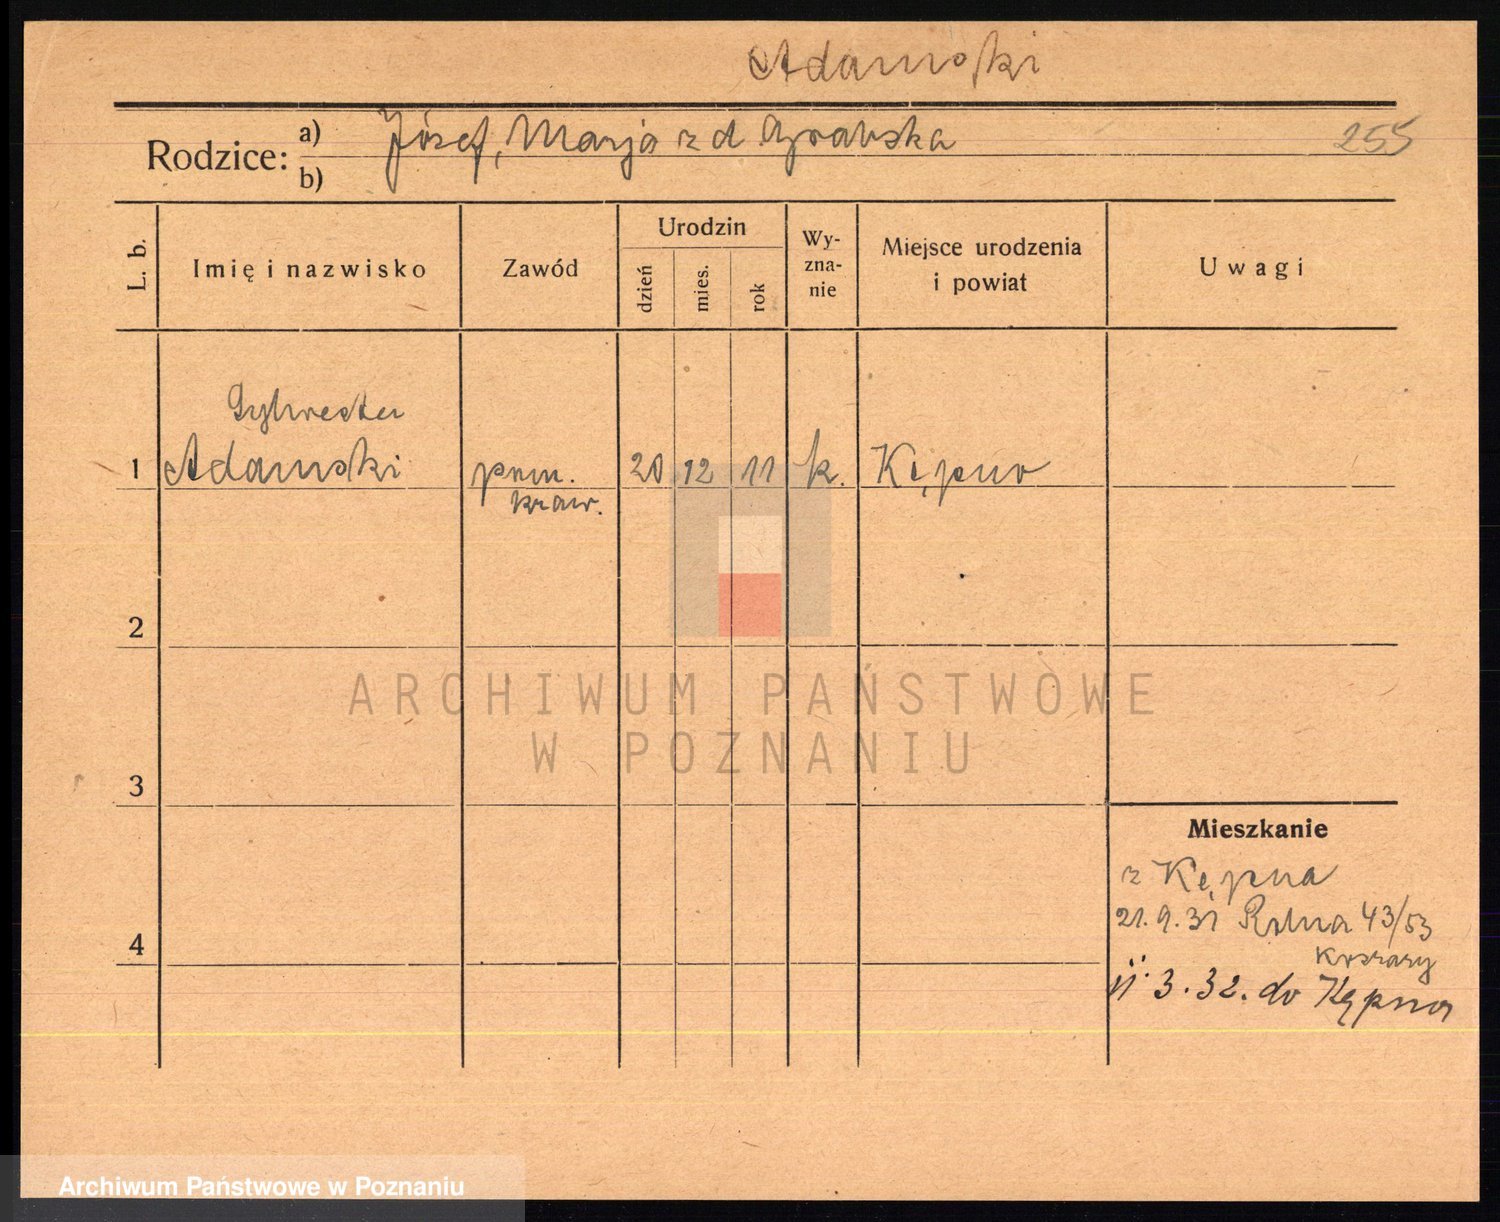 Adamski
Rodzice: a) Józef, Marja z d Grabska
b)
255
L. b.
Imię i nazwisko
Zawód
Urodzin
dzień
mies.
rok
Wy-
zna-
nie
Miejsce urodzenia
i powiat
Uwagi
Sylwester
1 Adamski pom. 20 12 11 k. Kępno
kraw.
2
3
4
Mieszkanie
z Kępna
21.9.31 Rolna 43/53
Koszary
11.3.32. do Kępna
ARCHIWUM PAŃSTWOWE
W POZNANIU
Archiwum Państwowe w Poznaniu